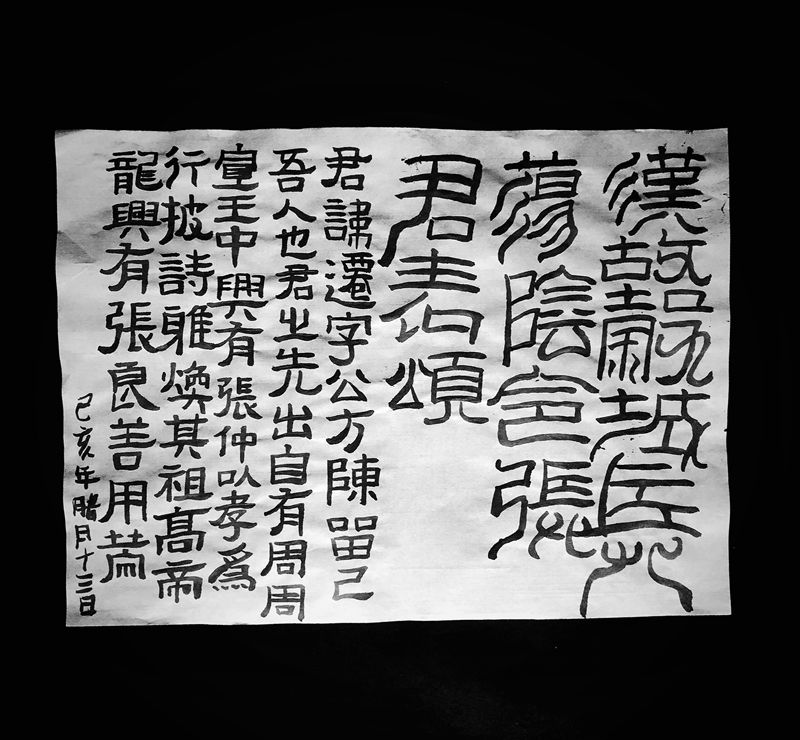 漢故穀城長
蕩陰令張
君表頌
君諱遷字公方陳留己
吾人也君之先出自有周周
宣王中興有張仲以孝為
行披詩雅煥其祖高帝
龍興有張良善用籌
己亥年腊月十三日